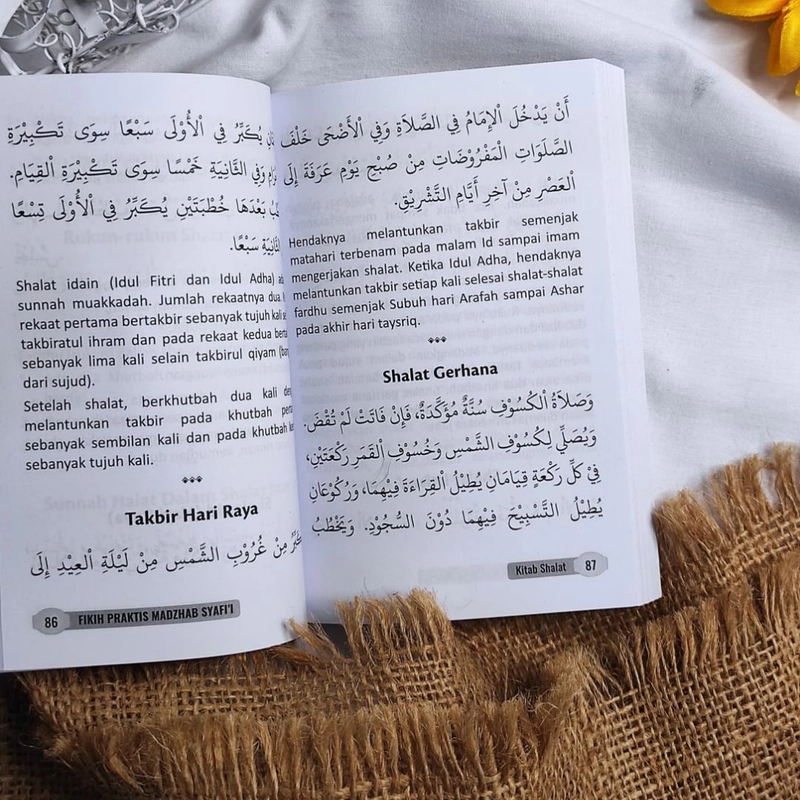 يُكَبِّرُ فِي الْأُوْلَى سَبْعًا سِوَى تَكْبِيْرَةِ
وَفِي الثَّانِيَةِ خَمْسًا سِوَى تَكْبِيْرَةِ الْقِيَامِ.
بَعْدَهَا خُطْبَتَيْنِ يُكَبِّرُ فِي الْأُوْلَى تِسْعًا
سَبْعًا.
Shalat idain (Idul Fitri dan Idul Adha)
sunnah muakkadah. Jumlah rekaatnya dua.
rekaat pertama bertakbir sebanyak tujuh kali
takbiratul ihram dan pada rekaat kedua
sebanyak lima kali selain takbirul qiyam
dari sujud).
Setelah shalat, berkhutbah dua kali
melantunkan takbir pada khutbah
sebanyak sembilan kali dan pada khutbah
sebanyak tujuh kali.
Takbir Hari Raya
مِنْ غُرُوْبِ الشَّمْسِ مِنْ لَيْلَةِ الْعِيْدِ إِلَى
86 FIKIH PRAKTIS MADZHAB SYAFI'I
أَنْ يَدْخُلَ الْإِمَامُ فِي الصَّلَاةِ وَفِي الْأَضْحَى خَلْفَ
الصَّلَوَاتِ الْمَفْرُوْضَاتِ مِنْ صُبْحِ يَوْمِ عَرَفَةَ إِلَى
الْعَصْرِ مِنْ آخِرِ أَيَّامِ التَّشْرِيْقِ.
Hendaknya melantunkan takbir semenjak
matahari terbenam pada malam Id sampai imam
mengerjakan shalat. Ketika Idul Adha, hendaknya
melantunkan takbir setiap kali selesai shalat-shalat
fardhu semenjak Subuh hari Arafah sampai Ashar
pada akhir hari taysriq.
Shalat Gerhana
وَصَلَاةُ الْكُسُوْفِ سُنَّةٌ مُؤَكَّدَةٌ، فَإِنْ فَاتَتْ لَمْ تُقْضَ.
وَيُصَلِّي لِكُسُوْفِ الشَّمْسِ وَخُسُوْفِ الْقَمَرِ رَكْعَتَيْنِ،
فِيْ كُلِّ رَكْعَةٍ قِيَامَانِ يُطِيْلُ الْقِرَاءَةَ فِيْهِمَا، وَرُكُوْعَانِ
يُطِيْلُ التَّسْبِيْحَ فِيْهِمَا دُوْنَ السُّجُوْدِ. وَيَخْطُبُ
Kitab Shalat 87